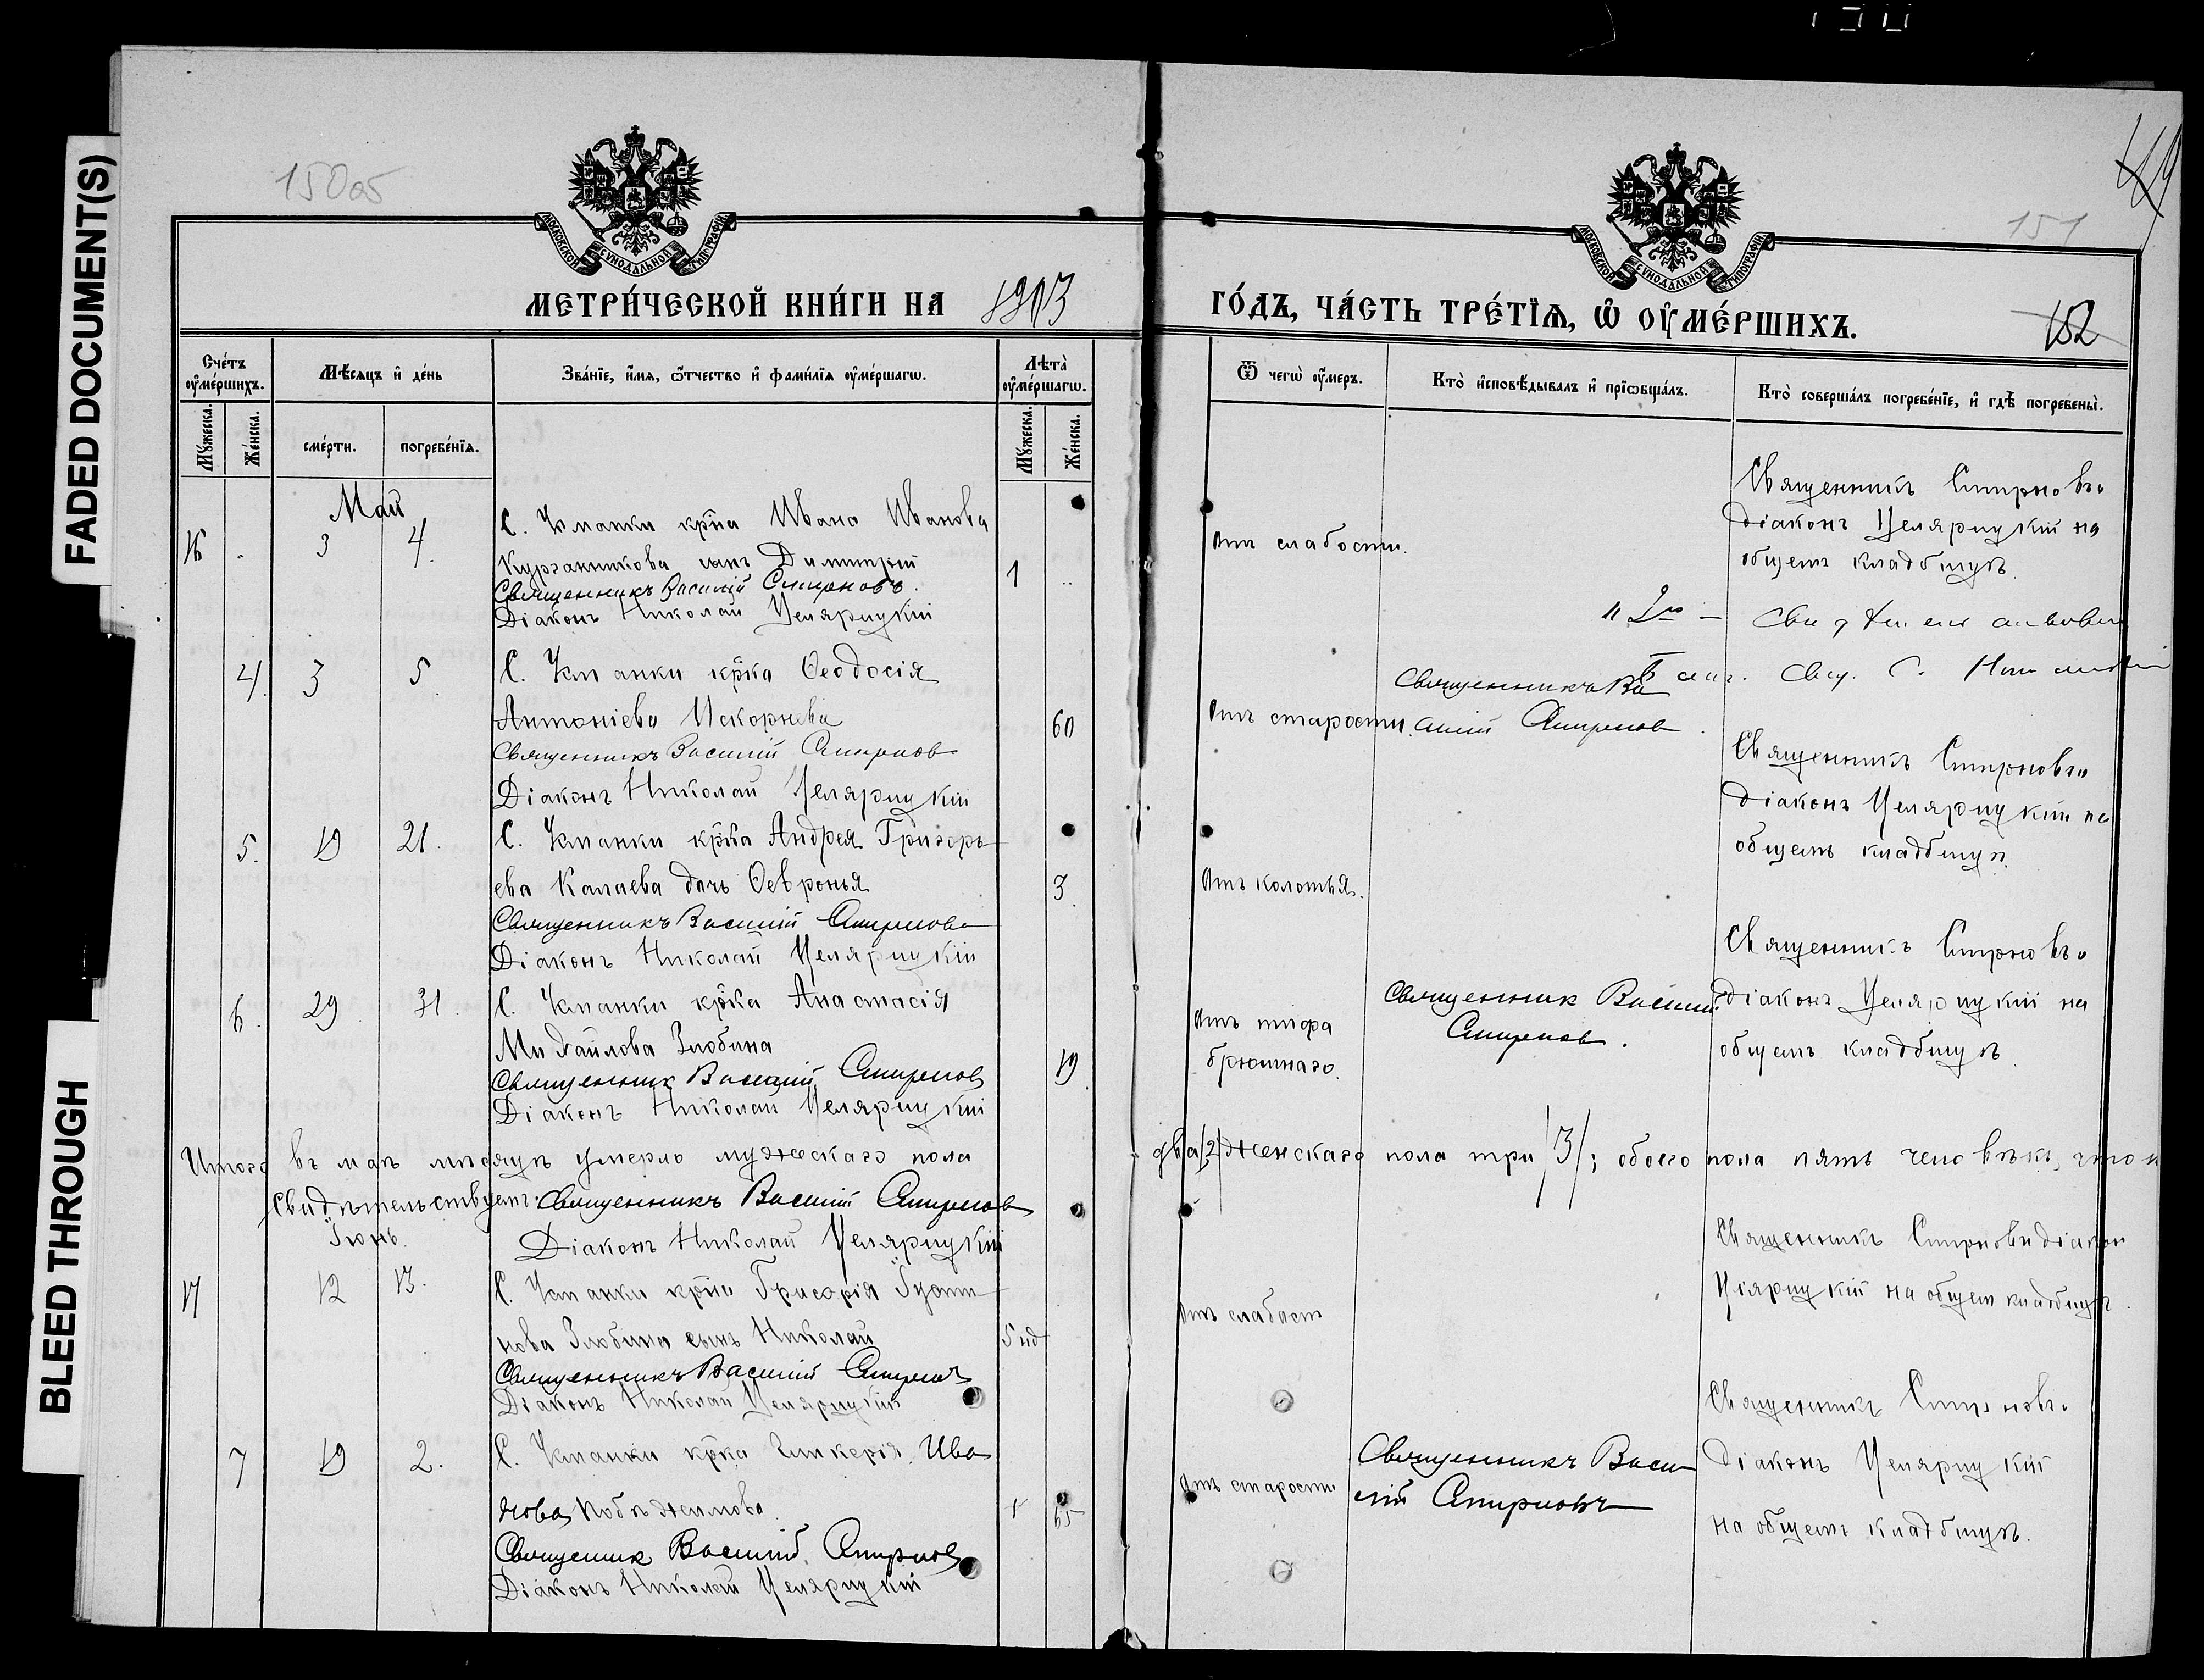 FADED DOCUMENT(S)
BLEED THROUGH
15005
151
152
МОСКОВСКОЙ СѴНОДАЛЬНОЙ ТИПОГРАФІИ
МОСКОВСКОЙ СѴНОДАЛЬНОЙ ТИПОГРАФІИ
МЕТРИ́ЧЕСКОЙ КНИ́ГИ НА 1903
ГО́ДЪ, ЧА́СТЬ ТРЕ́ТІѦ, Ѽ ОУ҆МЕ́РШИХЪ.
Сче́тъ оу҆ме́ршихъ.
Мꙋ́жеска.
Же́нска.
Мѣ́сяцъ и҆ де́нь
сме́рти.
погребе́нїѧ.
Зва́нїе, и҆́мѧ, ѻ҆́тчество и҆ фами́лїѧ оу҆ме́ршагѡ.
Лѣта̀ оу҆ме́ршагѡ.
Мꙋ́жеска.
Же́нска.
Ѿ чегѡ̀ оу҆́меръ.
Кто̀ и҆сповѣ́дывалъ и҆ прїѡбща́лъ.
Кто̀ соверша́лъ погребе́нїе, и҆ гдѣ̀ погребены̀.
Май
16 3 4. С. Уманки кр̃на Ивана Иванова
Курганникова сынъ Димитрій 1
Священникъ Василій Смирновъ.
Діаконъ Николай Целярицкій
Отъ слабости.
Священникъ Смирновъ и
діаконъ Целярицкій на
общемъ кладбищѣ.
4. 3 5. С. Уманки кр̃ка Ѳеодосія
Антоніева Искорнева 60
Священникъ Василій Смирнов
Діаконъ Николай Целярицкій
Отъ старости.
Священникъ Ва
силій Смирнов.
Священникъ Смирновъ и
діаконъ Целярицкій на
общемъ кладбищѣ.
5. 19 21. С. Уманки кр̃на Андрея Григорь
ева Калаева дочь Ѳевронья 3.
Священникъ Василій Смирнов
Діаконъ Николай Целярицкій
Отъ колотья.
Священникъ Смирновъ и
діаконъ Целярицкій на
общемъ кладбищѣ.
6. 29. 31. С. Уманки кр̃ка Анастасія
Михайлова Злобина 19
Священник Василій Смирнов
Діаконъ Николай Целярицкій
Отъ тифа
брюшнаго.
Священник Василій
Смирнов.
Итого въ маѣ мѣсяцѣ умерло мужескаго пола два /2/ женскаго пола три /3/; обоего пола пять человѣкъ, что и
Свидѣтельствуемъ: Священникъ Василій Смирнов
Діаконъ Николай Целярицкій
Іюнь.
17 12 13. С. Уманки кр̃на Григорія
Злобина сынъ Николай 5 нд
Священникъ Василій Смирновъ
Діаконъ Николай Целярицкій
Отъ слабост
Священникъ Смирнов и діакон
Цілярицкій на общем кладбищѣ.
7 19 2. С. Уманки кр̃ка Гликерія Ива
нова 65
Священник Василій Смирнов
Діаконъ Николай Целярицкій
Отъ старости
Священникъ Васи
лій Смирновъ
Священникъ Смирновъ и
діаконъ Целярицкій
на общемъ кладбищѣ.